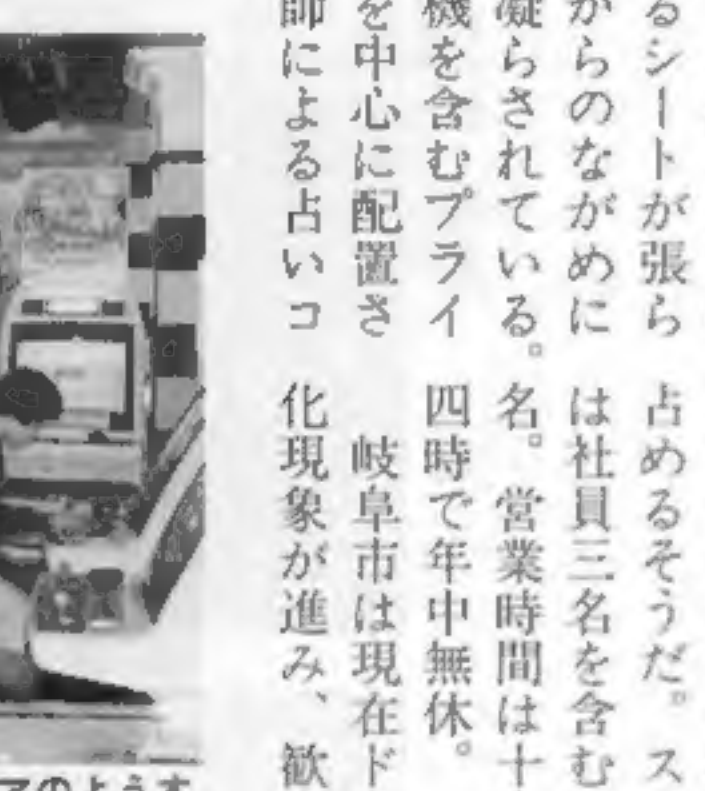 るシートが張ら
からのながめに
凝らされている。
機を含むプライ
を中心に配置さ
師による占いコ
占めるそうだ。ス
は社員三名を含む
名。営業時間は十
四時で年中無休。
岐阜市は現在ド
化現象が進み、歓
マのようす